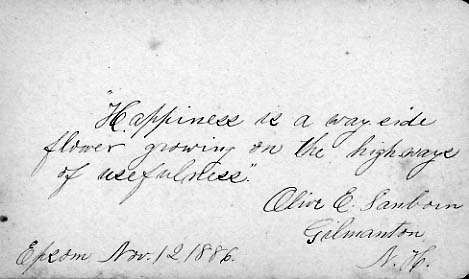 "Happiness is a wayside
flower growing on the highways
of usefulness."
Olive E. Sanborn
Gilmanton
N. H.
Epsom Nov. 12 1886.